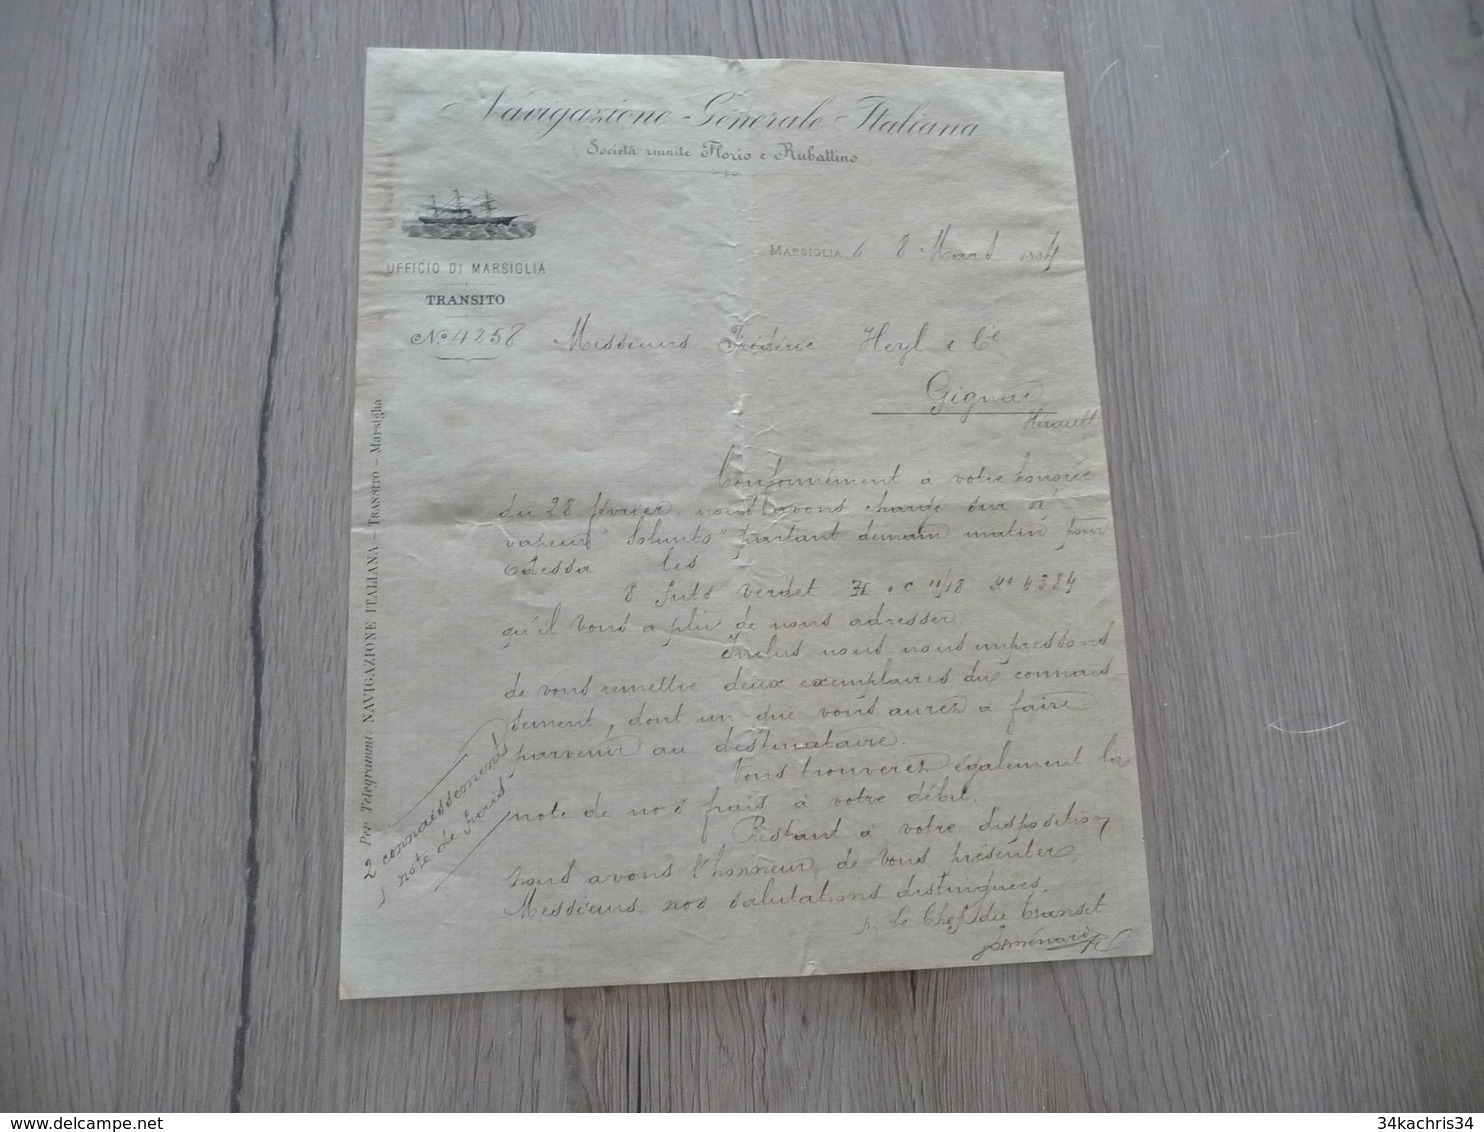 Navigazione Generale Italiana
(Società riunite Florio e Rubattino)
UFFICIO DI MARSIGLIA
TRANSITO
No 4258
MARSIGLIA, le 8 Mars 1884
Messieurs Frédéric Heyl & Cie
Gignac
Hérault
Conformément à votre honorée
du 28 février, nous avons chargé sur n/
vapeur "Solunto" partant demain matin pour
Odessa les
8 futs verdet H & C 11/18 No 4384
qu'il vous a plu de nous adresser.
Inclus nous nous empressons
de vous remettre deux exemplaires du connais
sement, dont un que vous aurez à faire
parvenir au destinataire.
Vous trouverez également la
note de nos frais à votre débit.
Restant à votre disposition,
nous avons l'honneur de vous présenter,
Messieurs nos salutations distinguées.
p. le Chef du transit
2 connaissements
1 note de frais
Per Telegrammi: NAVIGAZIONE ITALIANA – TRANSITO – Marsiglia.
34kachris34